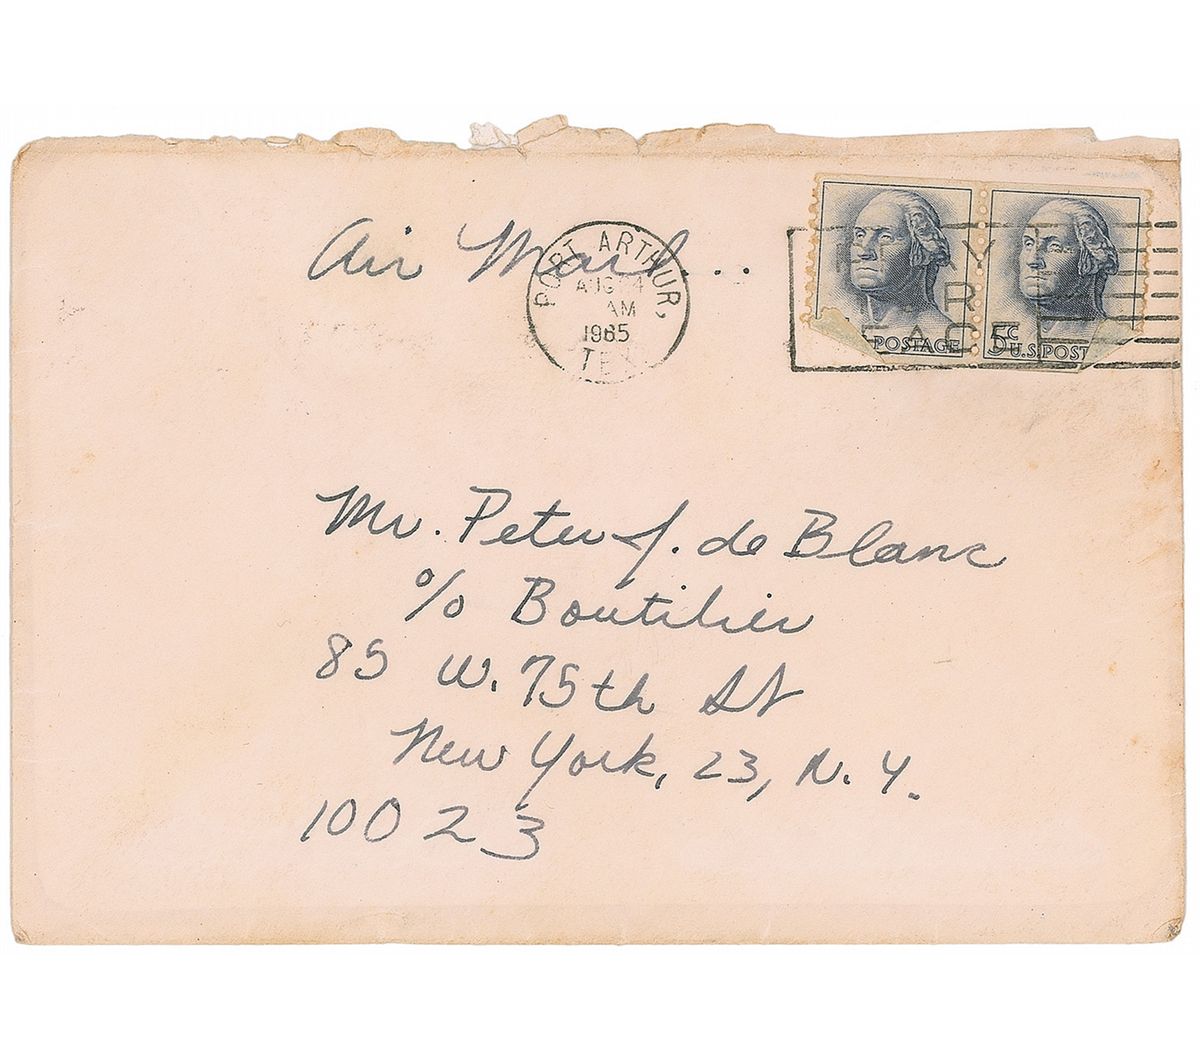 Air Mail...
PORT ARTHUR,
AUG 4
AM
1965
TEX
PRAY
FOR
PEACE
POSTAGE
5c
U.S. POST
Mr. Peter J. de Blanc
c/o Boutilier
85 W. 75th St
New York, 23, N.Y.
10023